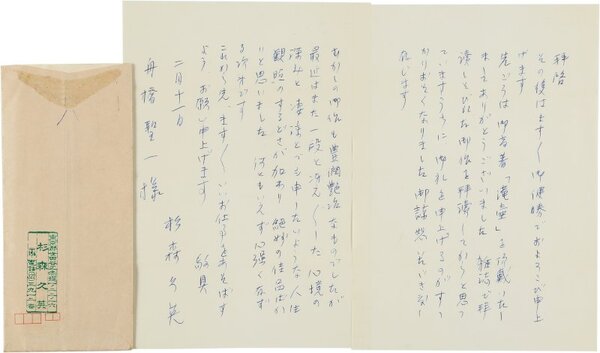 拝啓
その後はます〱御健勝でおよろこび申上
げます
先ごろは御高著「滝壷」を頂戴いたし
ましてありがとうございました 雑誌で拝
読しそびれた御作を拝読してからと思っ
ていますうちに 御礼を申上げるのがすっ
かりおそくなりました 御諒恕
じます
むかしの御作も豊潤艶冶なものでしたが
最近はまた一段と冴え〱した心境の
深みと 凄みとでも申したいような人生
観照のするどさが加わり 絶妙の佳品ばか
りと思いました 何ともいえず心強く
る次第です
これから先、ます〱いいお仕事を
よう お願い申上げます 敬具
二月十一日
杉森久英
舟橋聖一様
杉森久英